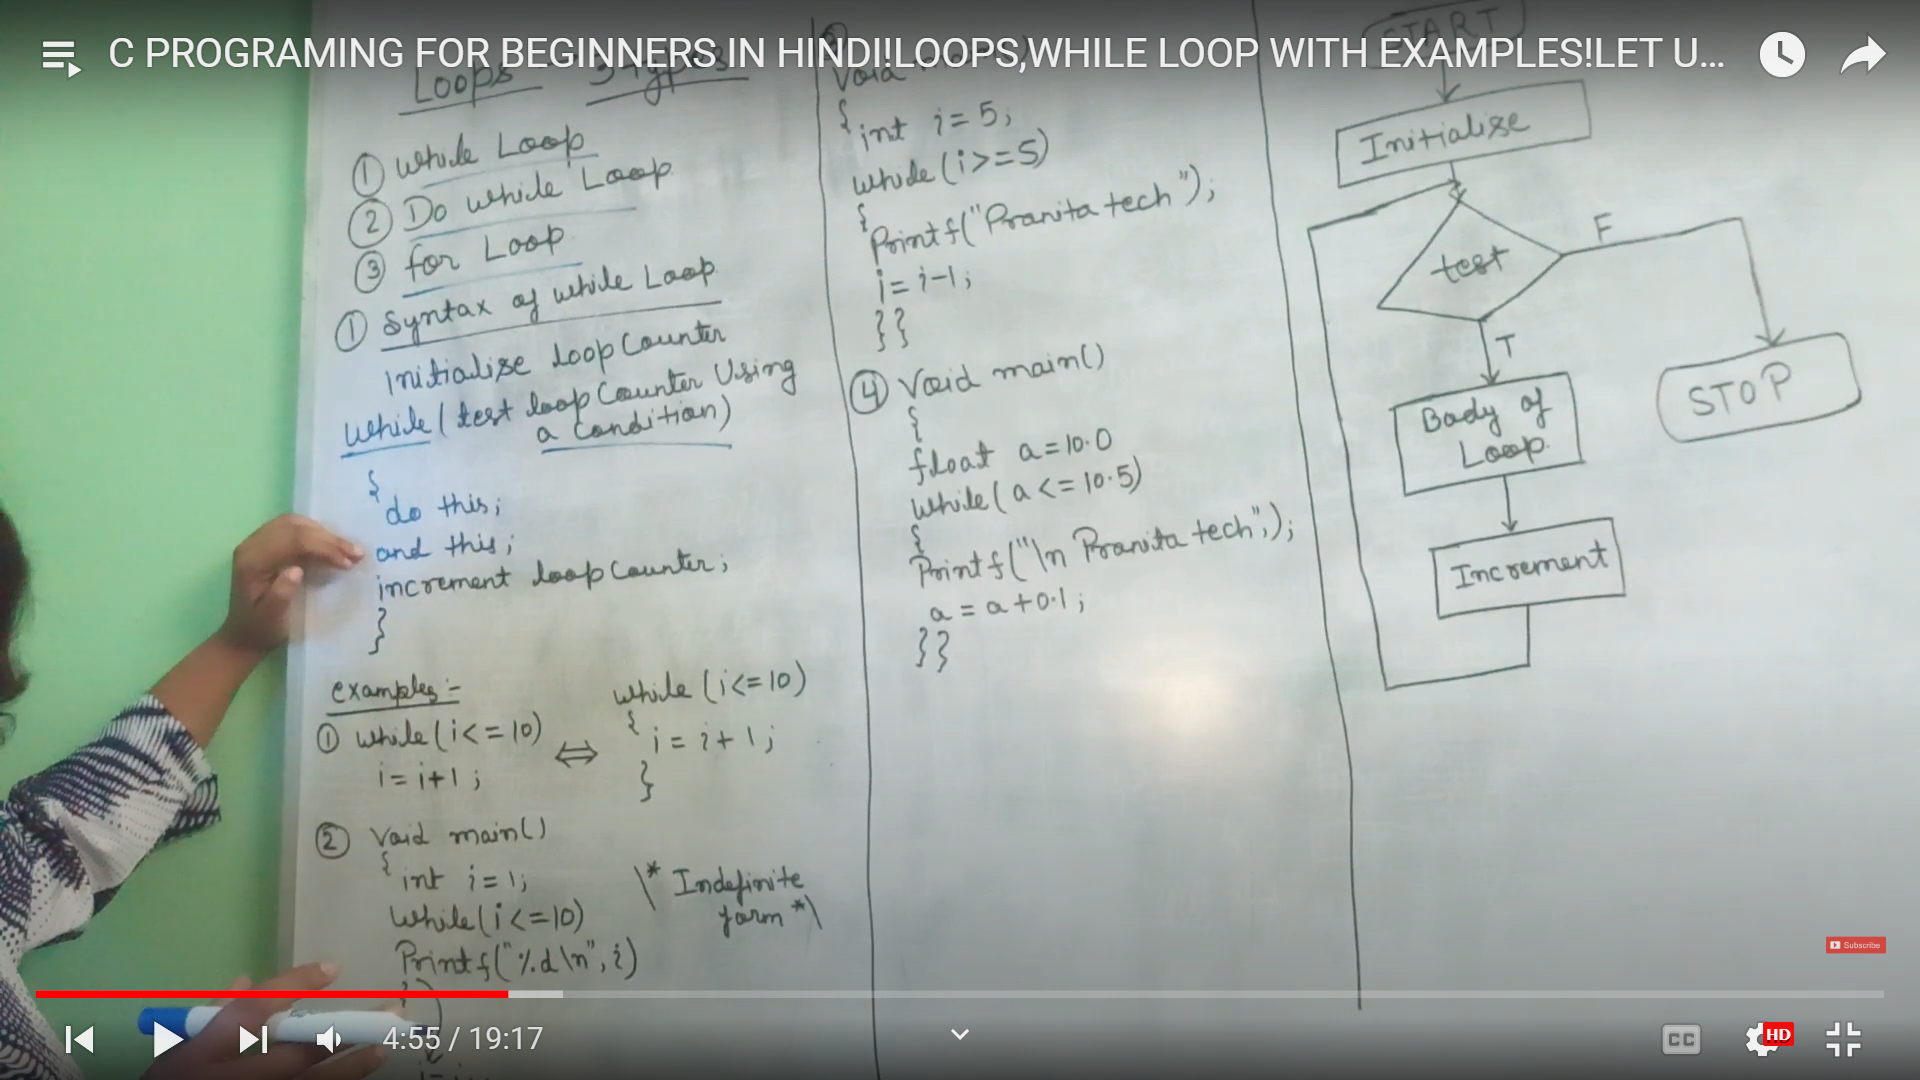 C PROGRAMING FOR BEGINNERS IN HINDI!LOOPS,WHILE LOOP WITH EXAMPLES!LET U...
Loops - 3 types
① while Loop
② Do while Loop
③ for Loop
① Syntax of while Loop
initialise loop Counter
while (test loop Counter Using
a Condition)
{
do this;
and this;
increment loop Counter;
}
examples:-
① while (i<=10)
i = i+1 ;
⇔
while (i<=10)
{
i = i+1 ;
}
② Void main()
{ int i=1;
while(i<=10)
Printf("%d\n", i)
\* Indefinite
form *\
Void
{
int i=5;
while (i>=5)
{
Printf("Pranita tech");
i = i-1;
}}
④ Void main()
{
float a=10.0
while (a<=10.5)
{
Printf("\n Pranita tech",);
a = a+0.1;
}}
START
Initialise
test
F
T
STOP
Body of
Loop
Increment
Subscribe
4:55 / 19:17
CC
HD